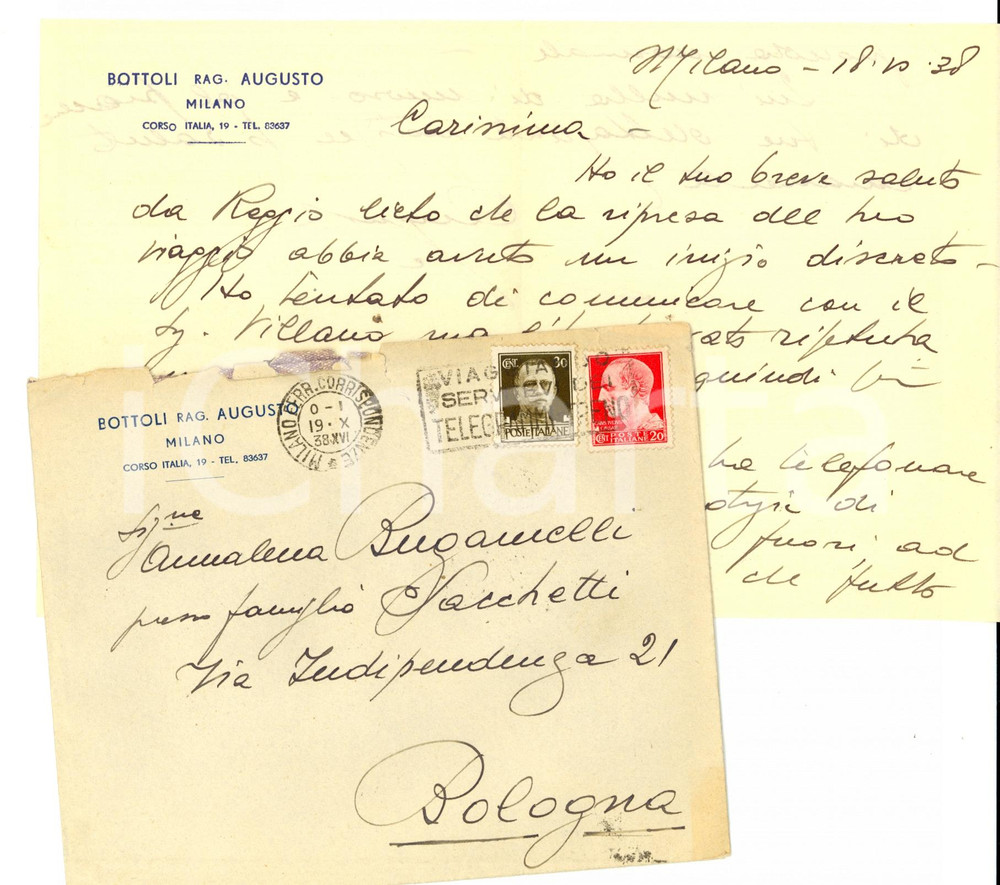 BOTTOLI RAG. AUGUSTO
MILANO
CORSO ITALIA, 19 - TEL. 83637
Milano - 18.10.38
Carissima -
Ho il tuo breve saluto
da Reggio lieto che la ripresa del tuo
viaggio abbia avuto un inizio discreto -
Ho tentato di comunicare con il
Sg. Villano ma ripetuta
quindi
telefonare
di
fuori, ad
che tutto
BOTTOLI RAG. AUGUSTO
MILANO
CORSO ITALIA, 19 - TEL. 83637
MILANO FERR. CORRISPONDENZE
0-1
19 · X
38 XVI
VIA
SERV
TELEG
CENT. 30
POSTE ITALIANE
POSTE ITALIANE
CENT 20
Sig.na
Annalena Buganelli
presso famiglia Sacchetti
Via Indipendenza 21
Bologna
iCharta